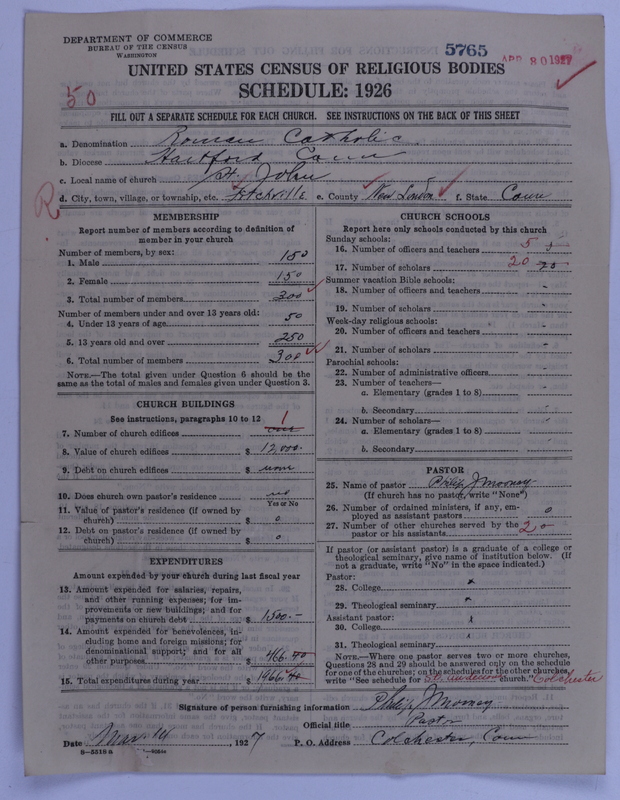 DEPARTMENT OF COMMERCE
BUREAU OF THE CENSUS
WASHINGTON
5765
APR 30 1927
UNITED STATES CENSUS OF RELIGIOUS BODIES
SCHEDULE: 1926
50
FILL OUT A SEPARATE SCHEDULE FOR EACH CHURCH. SEE INSTRUCTIONS ON THE BACK OF THIS SHEET
a. Denomination Roman Catholic
b. Diocese Hartford Conn
c. Local name of church St. John
R
d. City, town, village, or township, etc. Fitchville e. County New London f. State Conn
MEMBERSHIP
Report number of members according to definition of
member in your church
Number of members, by sex:
1. Male 150
2. Female 150
3. Total number of members 300
Number of members under and over 13 years old:
4. Under 13 years of age 50
5. 13 years old and over 250
6. Total number of members 300
NOTE.—The total given under Question 6 should be the
same as the total of males and females given under Question 3.
CHURCH BUILDINGS
See instructions, paragraphs 10 to 12
7. Number of church edifices 1
8. Value of church edifices $ 12,000.
9. Debt on church edifices $ none
10. Does church own pastor's residence no
Yes or No
11. Value of pastor's residence (if owned by
church) $ 0
12. Debt on pastor's residence (if owned by
church) $ 0
EXPENDITURES
Amount expended by your church during last fiscal year
13. Amount expended for salaries, repairs,
and other running expenses; for im-
provements or new buildings; and for
payments on church debt $ 1500.—
14. Amount expended for benevolences, in-
cluding home and foreign missions; for
denominational support; and for all
other purposes $ 466.40
15. Total expenditures during year $ 1966.40
CHURCH SCHOOLS
Report here only schools conducted by this church
Sunday schools:
16. Number of officers and teachers 5 5
17. Number of scholars 20 20
Summer vacation Bible schools:
18. Number of officers and teachers -
19. Number of scholars -
Week-day religious schools:
20. Number of officers and teachers -
21. Number of scholars -
Parochial schools:
22. Number of administrative officers -
23. Number of teachers—
a. Elementary (grades 1 to 8) -
b. Secondary -
24. Number of scholars—
a. Elementary (grades 1 to 8) -
b. Secondary -
PASTOR
25. Name of pastor Philip J. Mooney
(If church has no pastor, write "None")
26. Number of ordained ministers, if any, em-
ployed as assistant pastors 0
27. Number of other churches served by the
pastor or his assistants 2
If pastor (or assistant pastor) is a graduate of a college or
theological seminary, give name of institution below. (If
not a graduate, write "No" in the space indicated.)
Pastor:
28. College
29. Theological seminary
Assistant pastor:
30. College
31. Theological seminary
NOTE.—Where one pastor serves two or more churches,
Questions 28 and 29 should be answered only on the schedule
for one of the churches; on the schedules for the other churches,
write "See schedule for St. Andrews church." Colchester
Signature of person furnishing information Philip J. Mooney
Official title Pastor
Date Mar. 14 1927 P. O. Address Colchester, Conn
8—5518 a